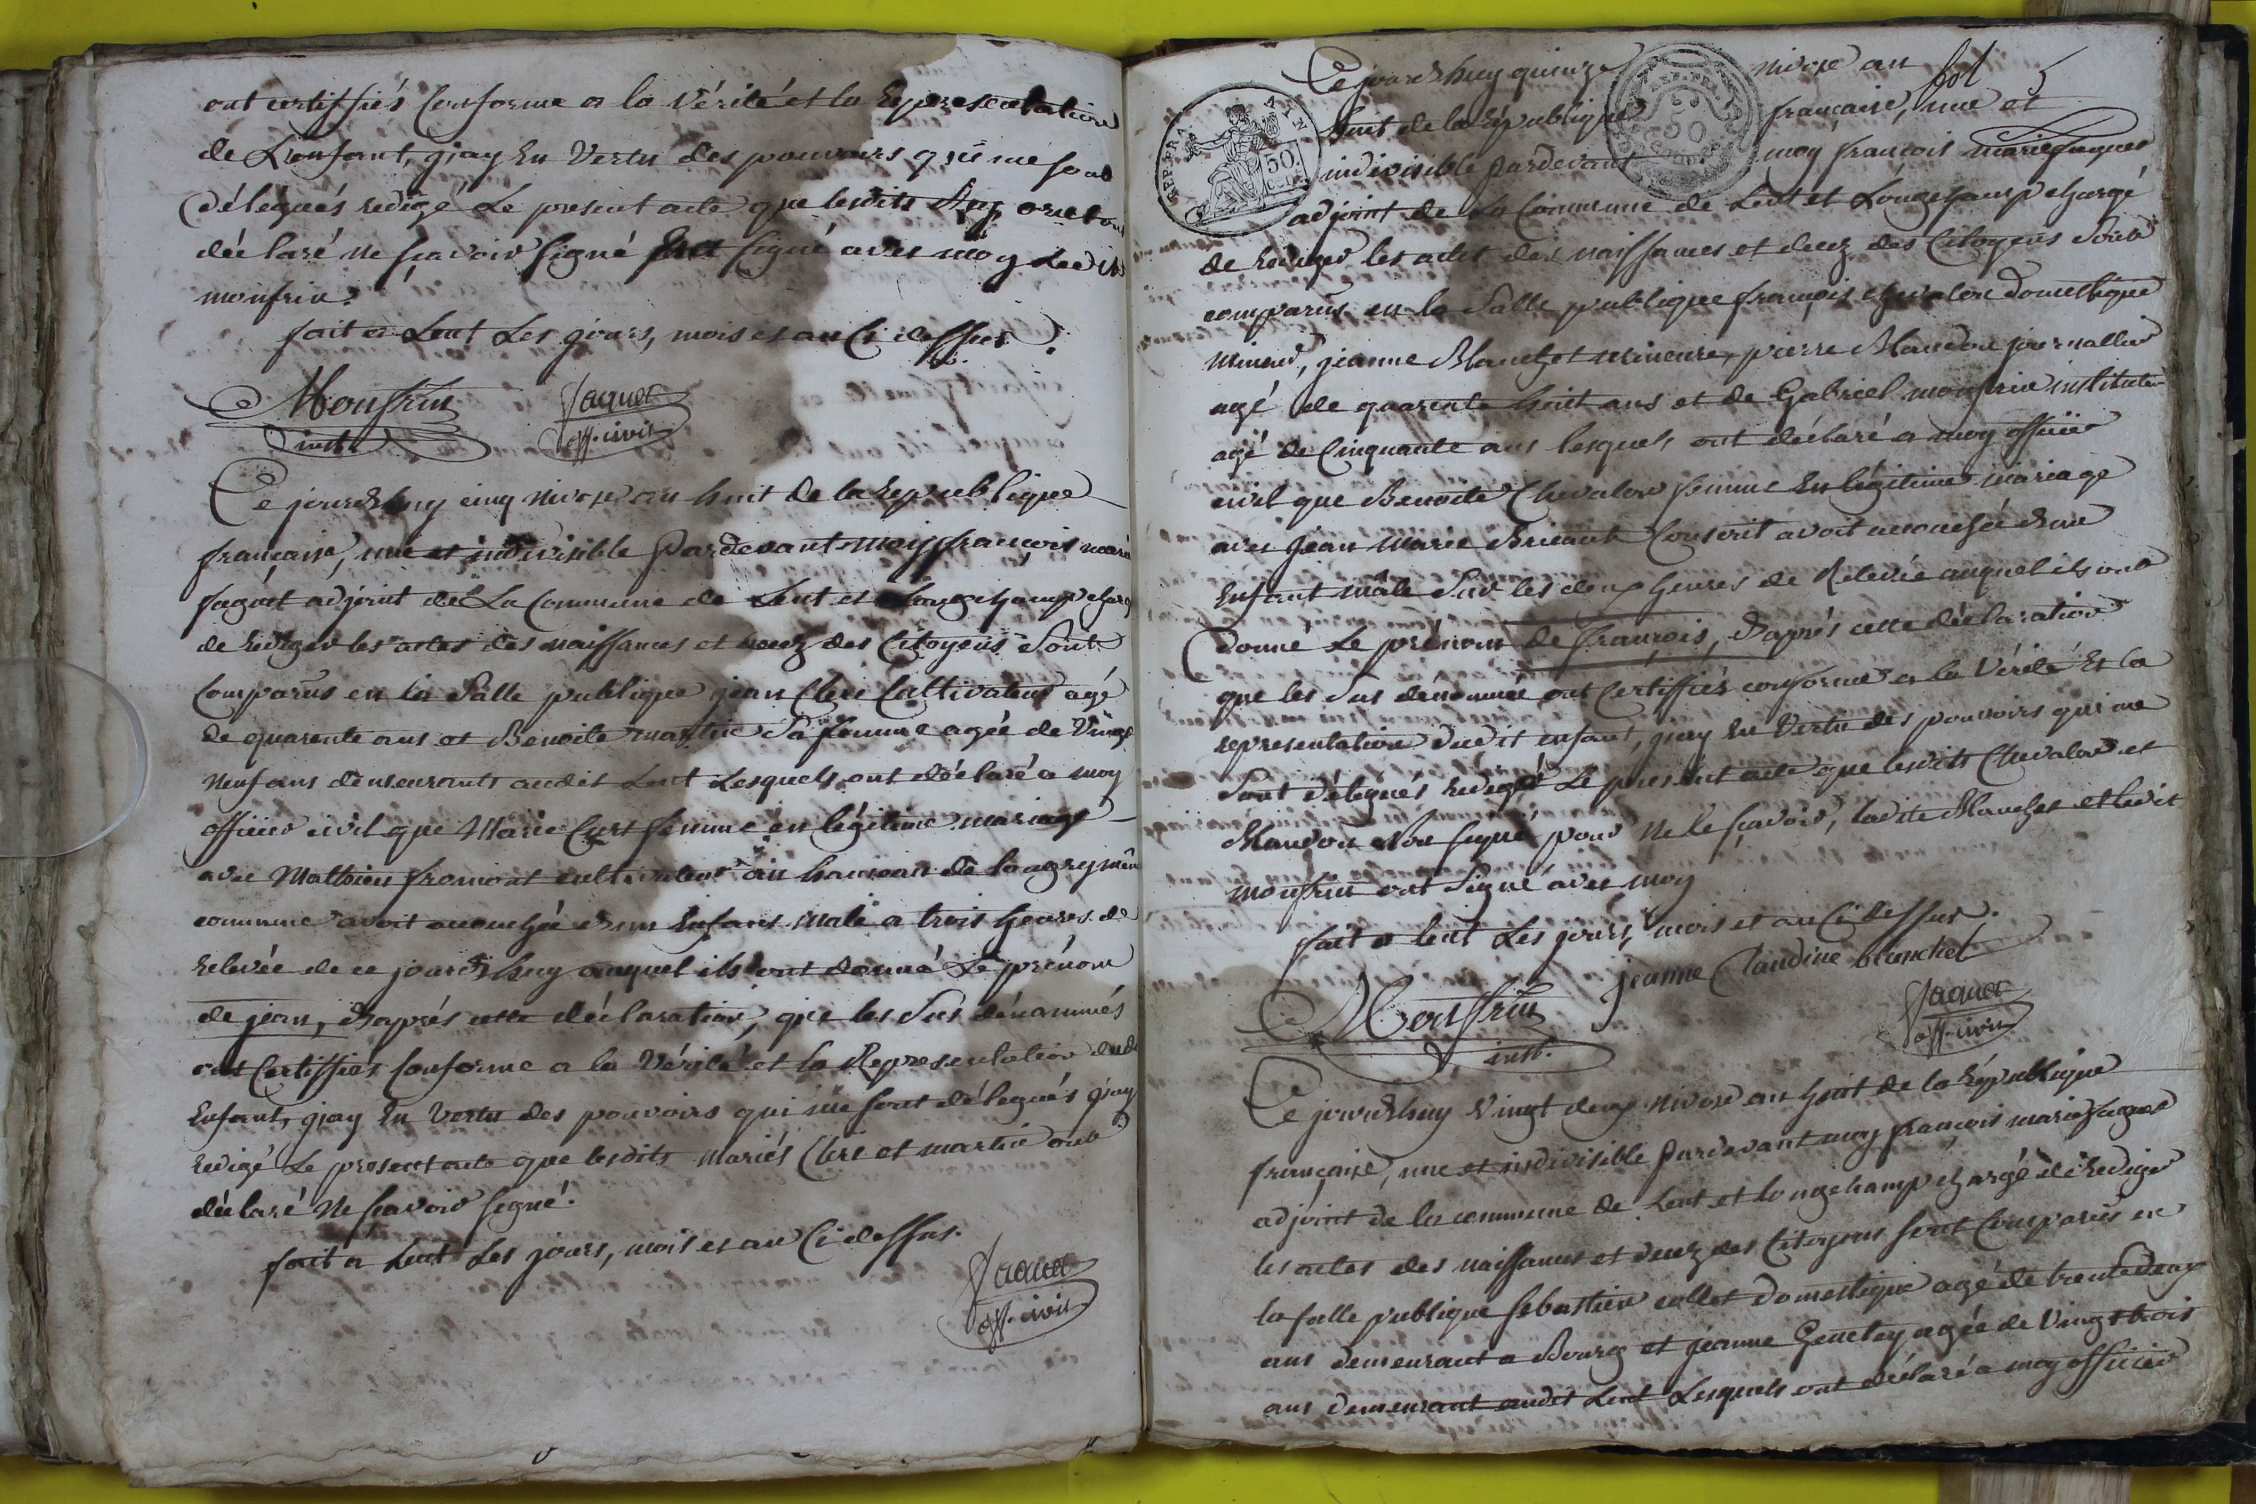 ont certiffiés Conforme a la Vérité et la Representation
de L'enfant, j'ay En Vertu des pouvoirs qui me sont
délegués redigé Le present acte que lesdits ont
déclaré ne sçavoir signé signé avec moy Ledit
monfrin.
fait a Lent Les jours, mois et an Ci dessus.
Monfrin Jaguet
inst. off. civil
Ce jourdhuy cinq nivose an huit de la Republique
française, une et indivisible Pardevant moy françois marie
Jaguet adjoint de La Commune de Lent et Longchamp chargé
de rediger les actes des naissances et decez des Citoyens Sont
Comparûs en la Salle publique jean Clerc Cultivateur agé
de quarente ans et Benoite martin Sa femme agée de Vingt
neuf ans demeurants audit Lent Lesquels ont déclaré a moy
officier civil que Marie Curt femme en légitime mariage
avec Mathieu fromont cultivateur au hameau de
commune avoit accouchée d'un Enfant male a trois heures de
relevée de ce jourdhuy auquel ils ont donné Le prénom
de jean, d'aprés cette déclaration, que les Sus dénommés
ont Certiffiés Conforme a la Vérité et la Representation dudit
Enfant, j'ay En Vertu des pouvoirs qui me sont délegués j'ay
redigé Le present acte que lesdits mariés Clerc et martin ont
déclaré Ne sçavoir signé.
fait a Lent Les jours, mois et an Ci dessus.
Jaguet
off. civil
fol 5
Ce jourdhuy quinze nivose an
huit de la République française, une et
indivisible pardevant moy françois marie Jaguet
adjoint de La Commune de Lent et Longchamp chargé
de Rediger les actes des naissances et decez des Citoyens Sont
comparûs en la Salle publique françois chevalon domestique
mineur, jeanne Blanchet mineure, pierre Blandon journallier
agé de quarente huit ans et de Gabriel monfrin instituteur
agé de Cinquante ans lesquels ont déclaré a moy officier
civil que Benoite Chevalon femme En légitime mariage
avec jean marie Conscrit avoit accouchée d'un
Enfant mâle Sur les deux heures de Relevée auquel ils ont
donné Le prénom de françois, d'aprés cette déclaration
que les Sus denommés ont Certiffiés conforme a la Vérité Et la
representation dudit enfant, j'ay En Vertu des pouvoirs qui me
Sont délegués redigé Le present acte que lesdits Chevalon et
Blandon N'ont signé pour Ne le sçavoir, ladite Blanchet et ledit
monfrin ont Signé avec moy
fait a lent Les jours, mois et an Ci dessus.
jeanne Claudine blanchet
Monfrin Jaguet
inst. off. civil
Ce jourdhuy Vingt deux nivose an huit de la République
française, une et indivisible pardevant moy françois marie Jaguet
adjoint de la commune de Lent et Longchamp chargé de Rediger
les actes des naissances et decez des Citoyens sont Comparûs en
la salle publique sebastien collet domestique agé de trente deux
ans demeurant a Bourg et jeanne agée de Vingt trois
ans demeurant audit Lent Lesquels ont déclaré a moy officier